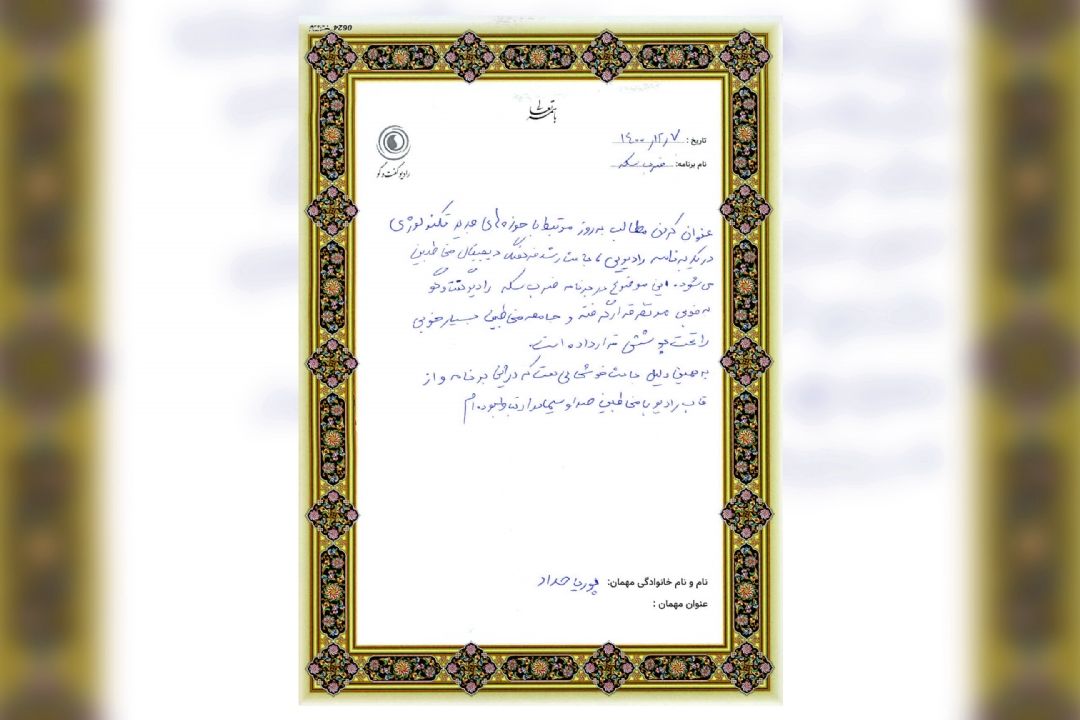 باسمه تعالی
تاریخ: ۱۴۰۰/۱۲/۷
نام برنامه: ضرب سکه
رادیو گفت و گو
عنوان کردن مطالب به روز مرتبط با حوزه‌های جدید تکنولوژی
در یک برنامه رادیویی باعث رشد فرهنگ دیجیتال مخاطبین
می‌شود. این موضوع در برنامه ضرب سکه رادیو گفت و گو
به خوبی مد نظر قرار گرفته و جامعه مخاطبین بسیار خوبی
را تحت پوشش قرار داده است.
به همین دلیل باعث خوشحالی‌ست که در این برنامه و از
قاب رادیو با مخاطبین صدا و سیما در ارتباط بوده‌ام
نام و نام خانوادگی مهمان: پوریا حداد
عنوان مهمان :